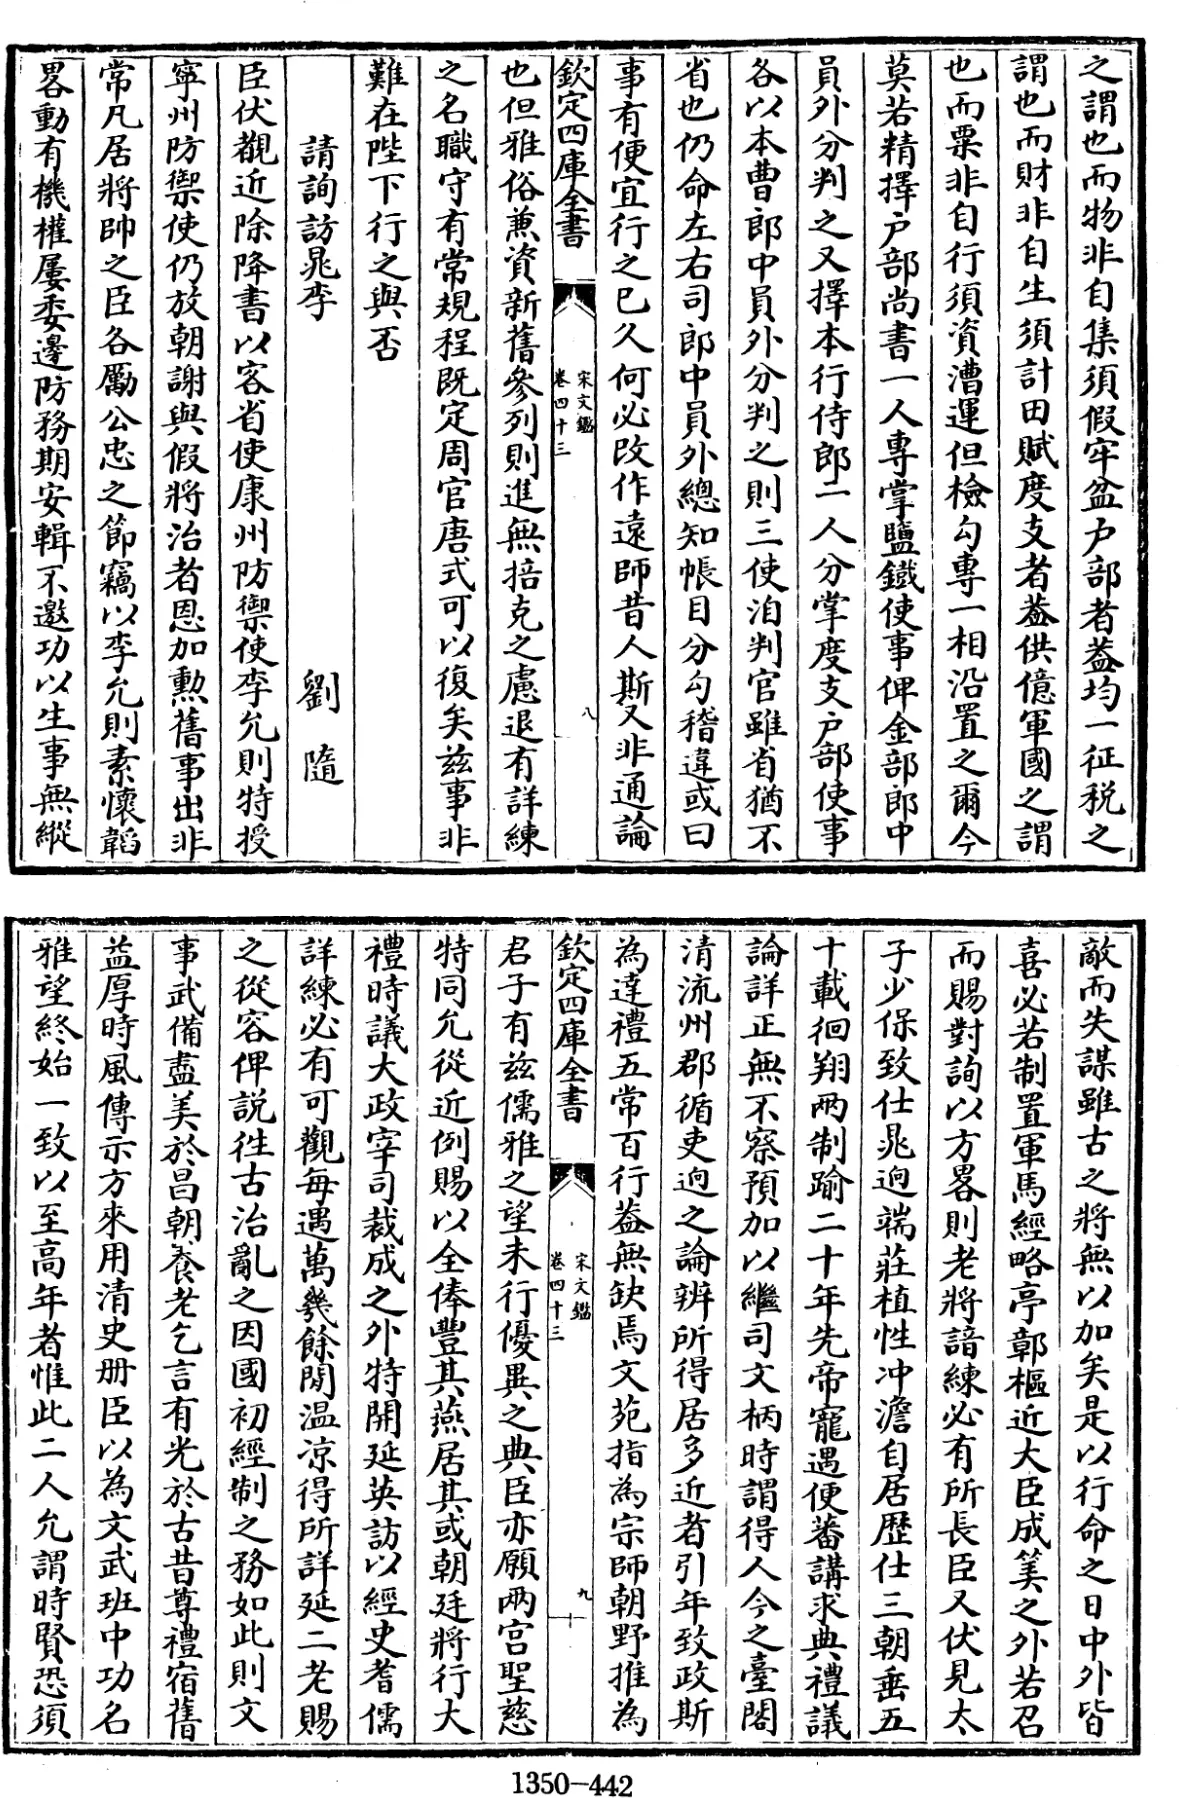 之謂也而物非自集須假牢盆户部者葢均一征税之
謂也而財非自生須計田賦度支者葢供億軍國之謂
也而粟非自行須資漕運但檢勾專一相沿置之爾今
莫若精擇户部尚書一人專掌鹽鐵使事俾金部郎中
員外分判之又擇本行侍郎二人分掌度支户部使事
各以本曹郎中員外分判之則三使洎判官雖省猶不
省也仍命左右司郎中員外總知帳目分勾稽違或曰
事有便宜行之已久何必改作遠師昔人斯又非通論
欽定四庫全書
宋文鑑
卷四十三
八
也但雅俗兼資新舊參列則進無掊克之慮退有詳練
之名職守有常規程既定周官唐式可以復矣兹事非
難在陛下行之與否
請詢訪晁李
劉隨
臣伏覩近除降書以客省使康州防禦使李允則特授
寧州防禦使仍放朝謝與假將治者恩加勲舊事出非
常凡居將帥之臣各勵公忠之節竊以李允則素懷韜
畧動有機權屢委邊防務期安輯不邀功以生事無縱
敵而失謀雖古之將無以加矣是以行命之日中外皆
喜必若制置軍馬經略亭鄣樞近大臣成筭之外若召
而賜對詢以方畧則老將諳練必有所長臣又伏見太
子少保致仕晁逈端莊植性冲澹自居歷仕三朝垂五
十載徊翔兩制踰二十年先帝寵遇便蕃講求典禮議
論詳正無不察預加以繼司文柄時謂得人今之臺閣
清流州郡循吏逈之論辨所得居多近者引年致政斯
為達禮五常百行葢無缺焉文苑指為宗師朝野推為
欽定四庫全書
宋文鑑
卷四十三
九
君子有兹儒雅之望未行優異之典臣亦願兩宫聖慈
特同允從近例賜以全俸豐其燕居其或朝廷將行大
禮時議大政宰司裁成之外特開延英訪以經史耆儒
詳練必有可觀毎遇萬㡬餘閒温凉得所詳延二老賜
之從容俾説徃古治亂之因國初經制之務如此則文
事武備盡美於昌朝養老乞言有光於古昔尊禮宿舊
益厚時風傳示方來用清史册臣以為文武班中功名
雅望終始一致以至高年者惟此二人允謂時賢恐須
1350-442